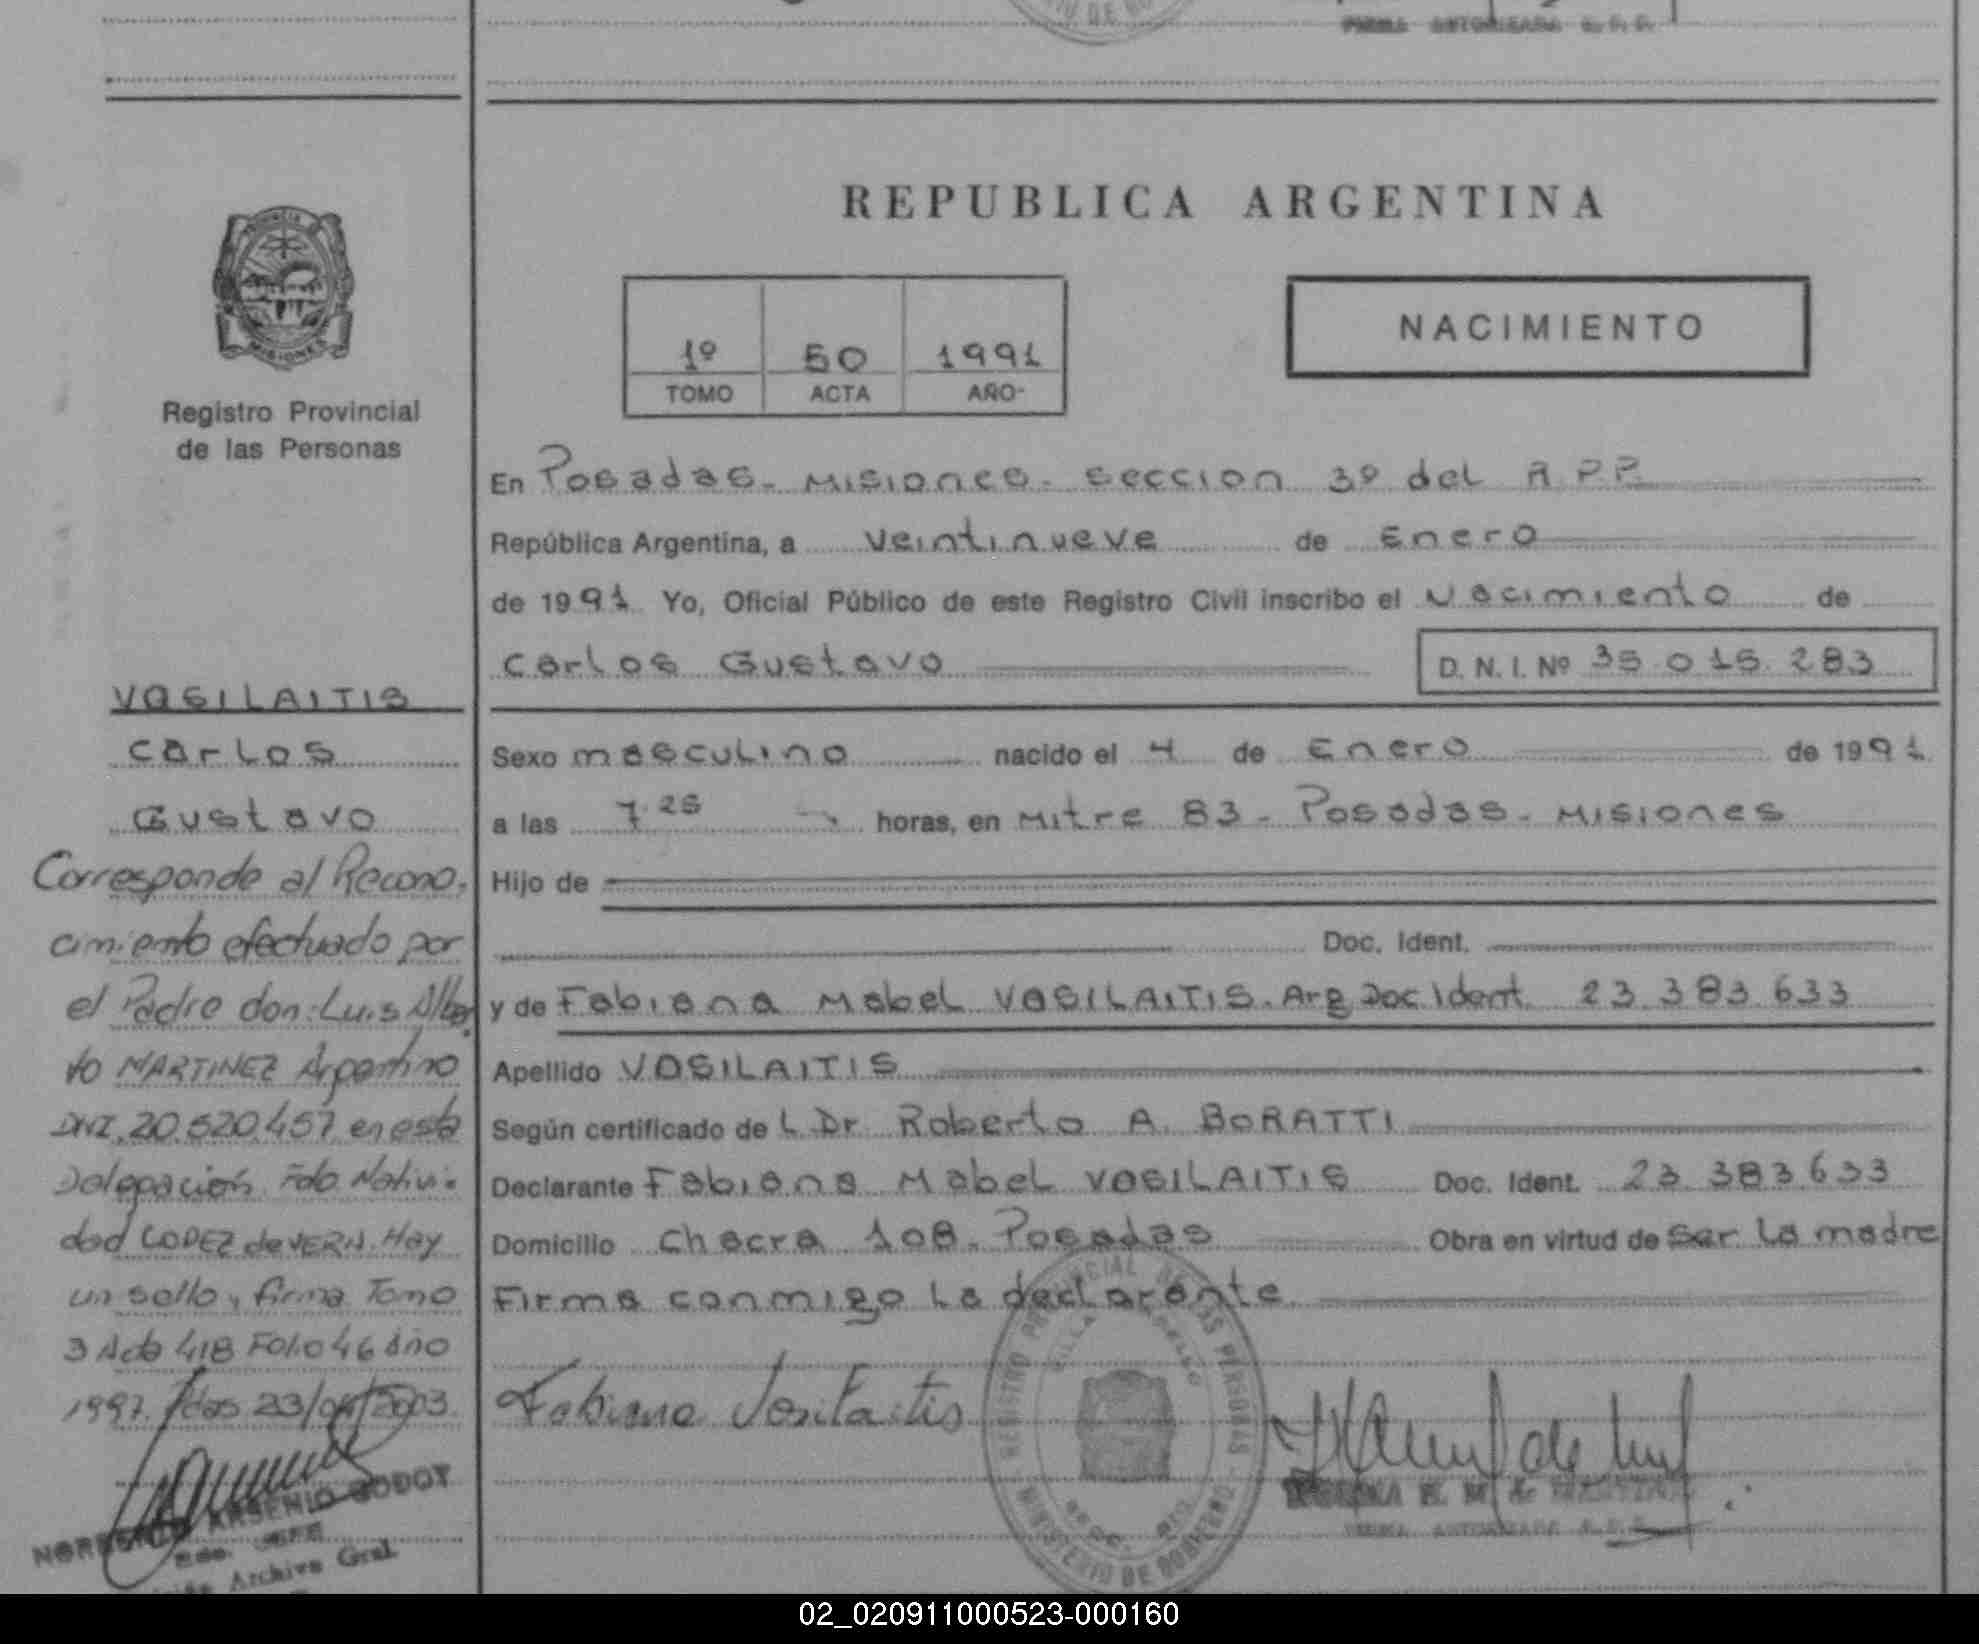 FIRMA AUTORIZADA R. P. P.
REPUBLICA ARGENTINA
PROVINCIA
MISIONES
Registro Provincial
de las Personas
1º 50 1991
TOMO ACTA AÑO
NACIMIENTO
En Posadas - Misiones - seccion 3º del R.P.P.
República Argentina, a veintinueve de Enero
de 1991 Yo, Oficial Público de este Registro Civil inscribo el Nacimiento de
Carlos Gustavo D. N. I. Nº 35.015.283
Sexo masculino nacido el 4 de Enero de 1991
a las 7.25 horas, en Mitre 83 - Posadas - Misiones
Hijo de
Doc. Ident.
y de Fabiana Mabel VASILAITIS. Arg Doc Ident. 23.383.633
Apellido VASILAITIS
Según certificado de L Dr. Roberto A. BORATTI
Declarante Fabiana Mabel VASILAITIS Doc. Ident. 23.383.633
Domicilio Chacra 108. Posadas Obra en virtud de ser la madre
Firma conmigo la declarante
Fabiana Vasilaitis
REGISTRO PROVINCIAL DE LAS PERSONAS
MINISTERIO DE GOBIERNO
FIRMA AUTORIZADA R.P.P.
VASILAITIS
Carlos
Gustavo
Corresponde al Recono.
cimiento efectuado por
el Padre don: Luis Alber
to MARTINEZ Argentino
DNI. 20.520.457 en esta
Delegación. Fdo Nativi-
dad LOPEZ de VERN. Hay
un sello y firma Tomo
3 Acta 418 Folio 46 año
1997. Pdas 23/04/2003.
ARSENIO GODOY
Archivo Gral.
02_020911000523-000160